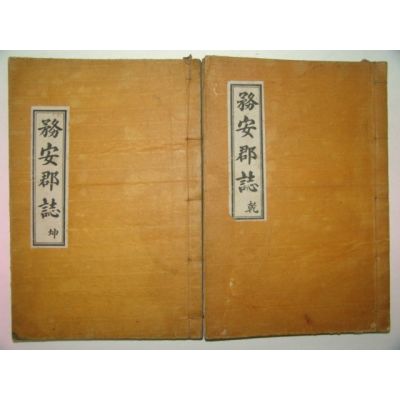 務安郡誌 乾
務安郡誌 坤